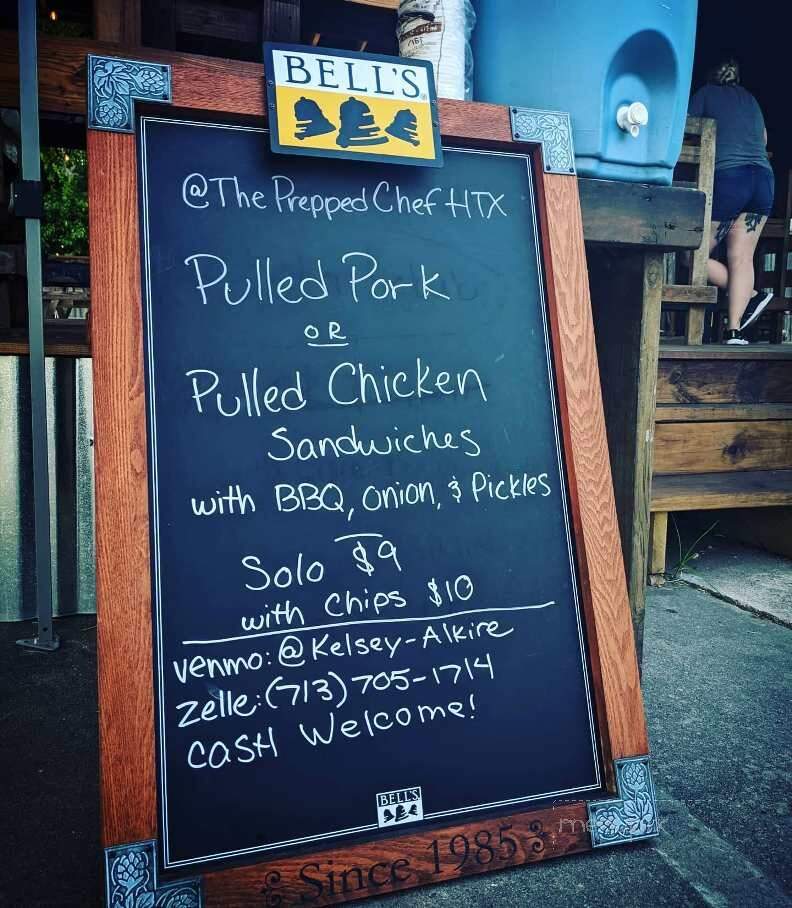 BELL'S
@The Prepped Chef HTX
Pulled Pork
OR
Pulled Chicken
Sandwiches
with BBQ, Onion, & Pickles
Solo $9
with Chips $10
venmo: @Kelsey-Alkire
Zelle: (713) 705-1714
CASH Welcome!
BELL'S
Since 1985